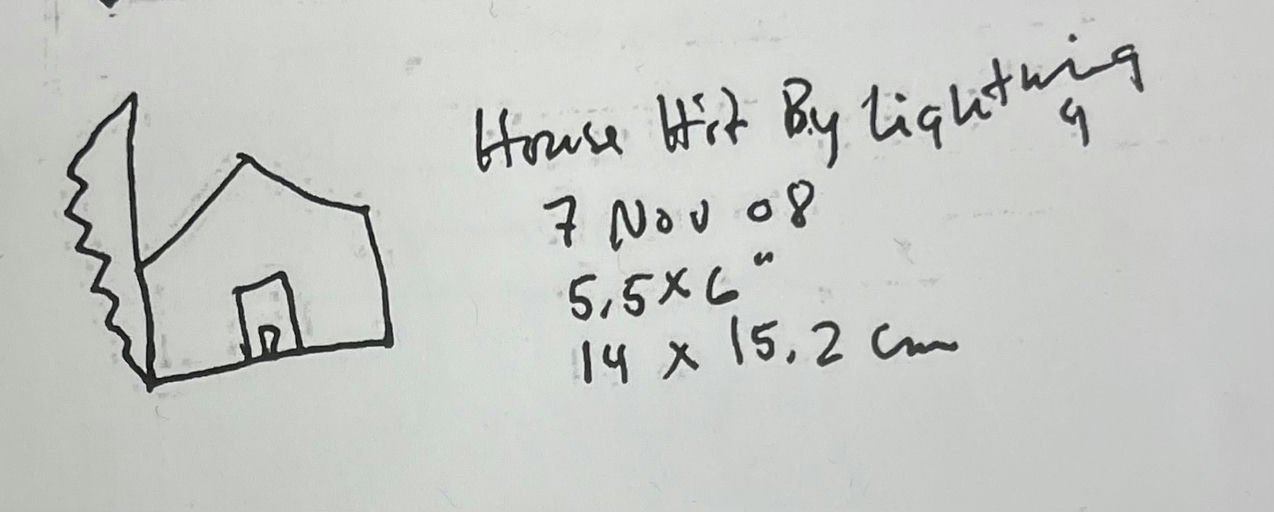 House Hit By Lightning
9
7 Nov 08
5.5 x 6"
14 x 15.2 cm